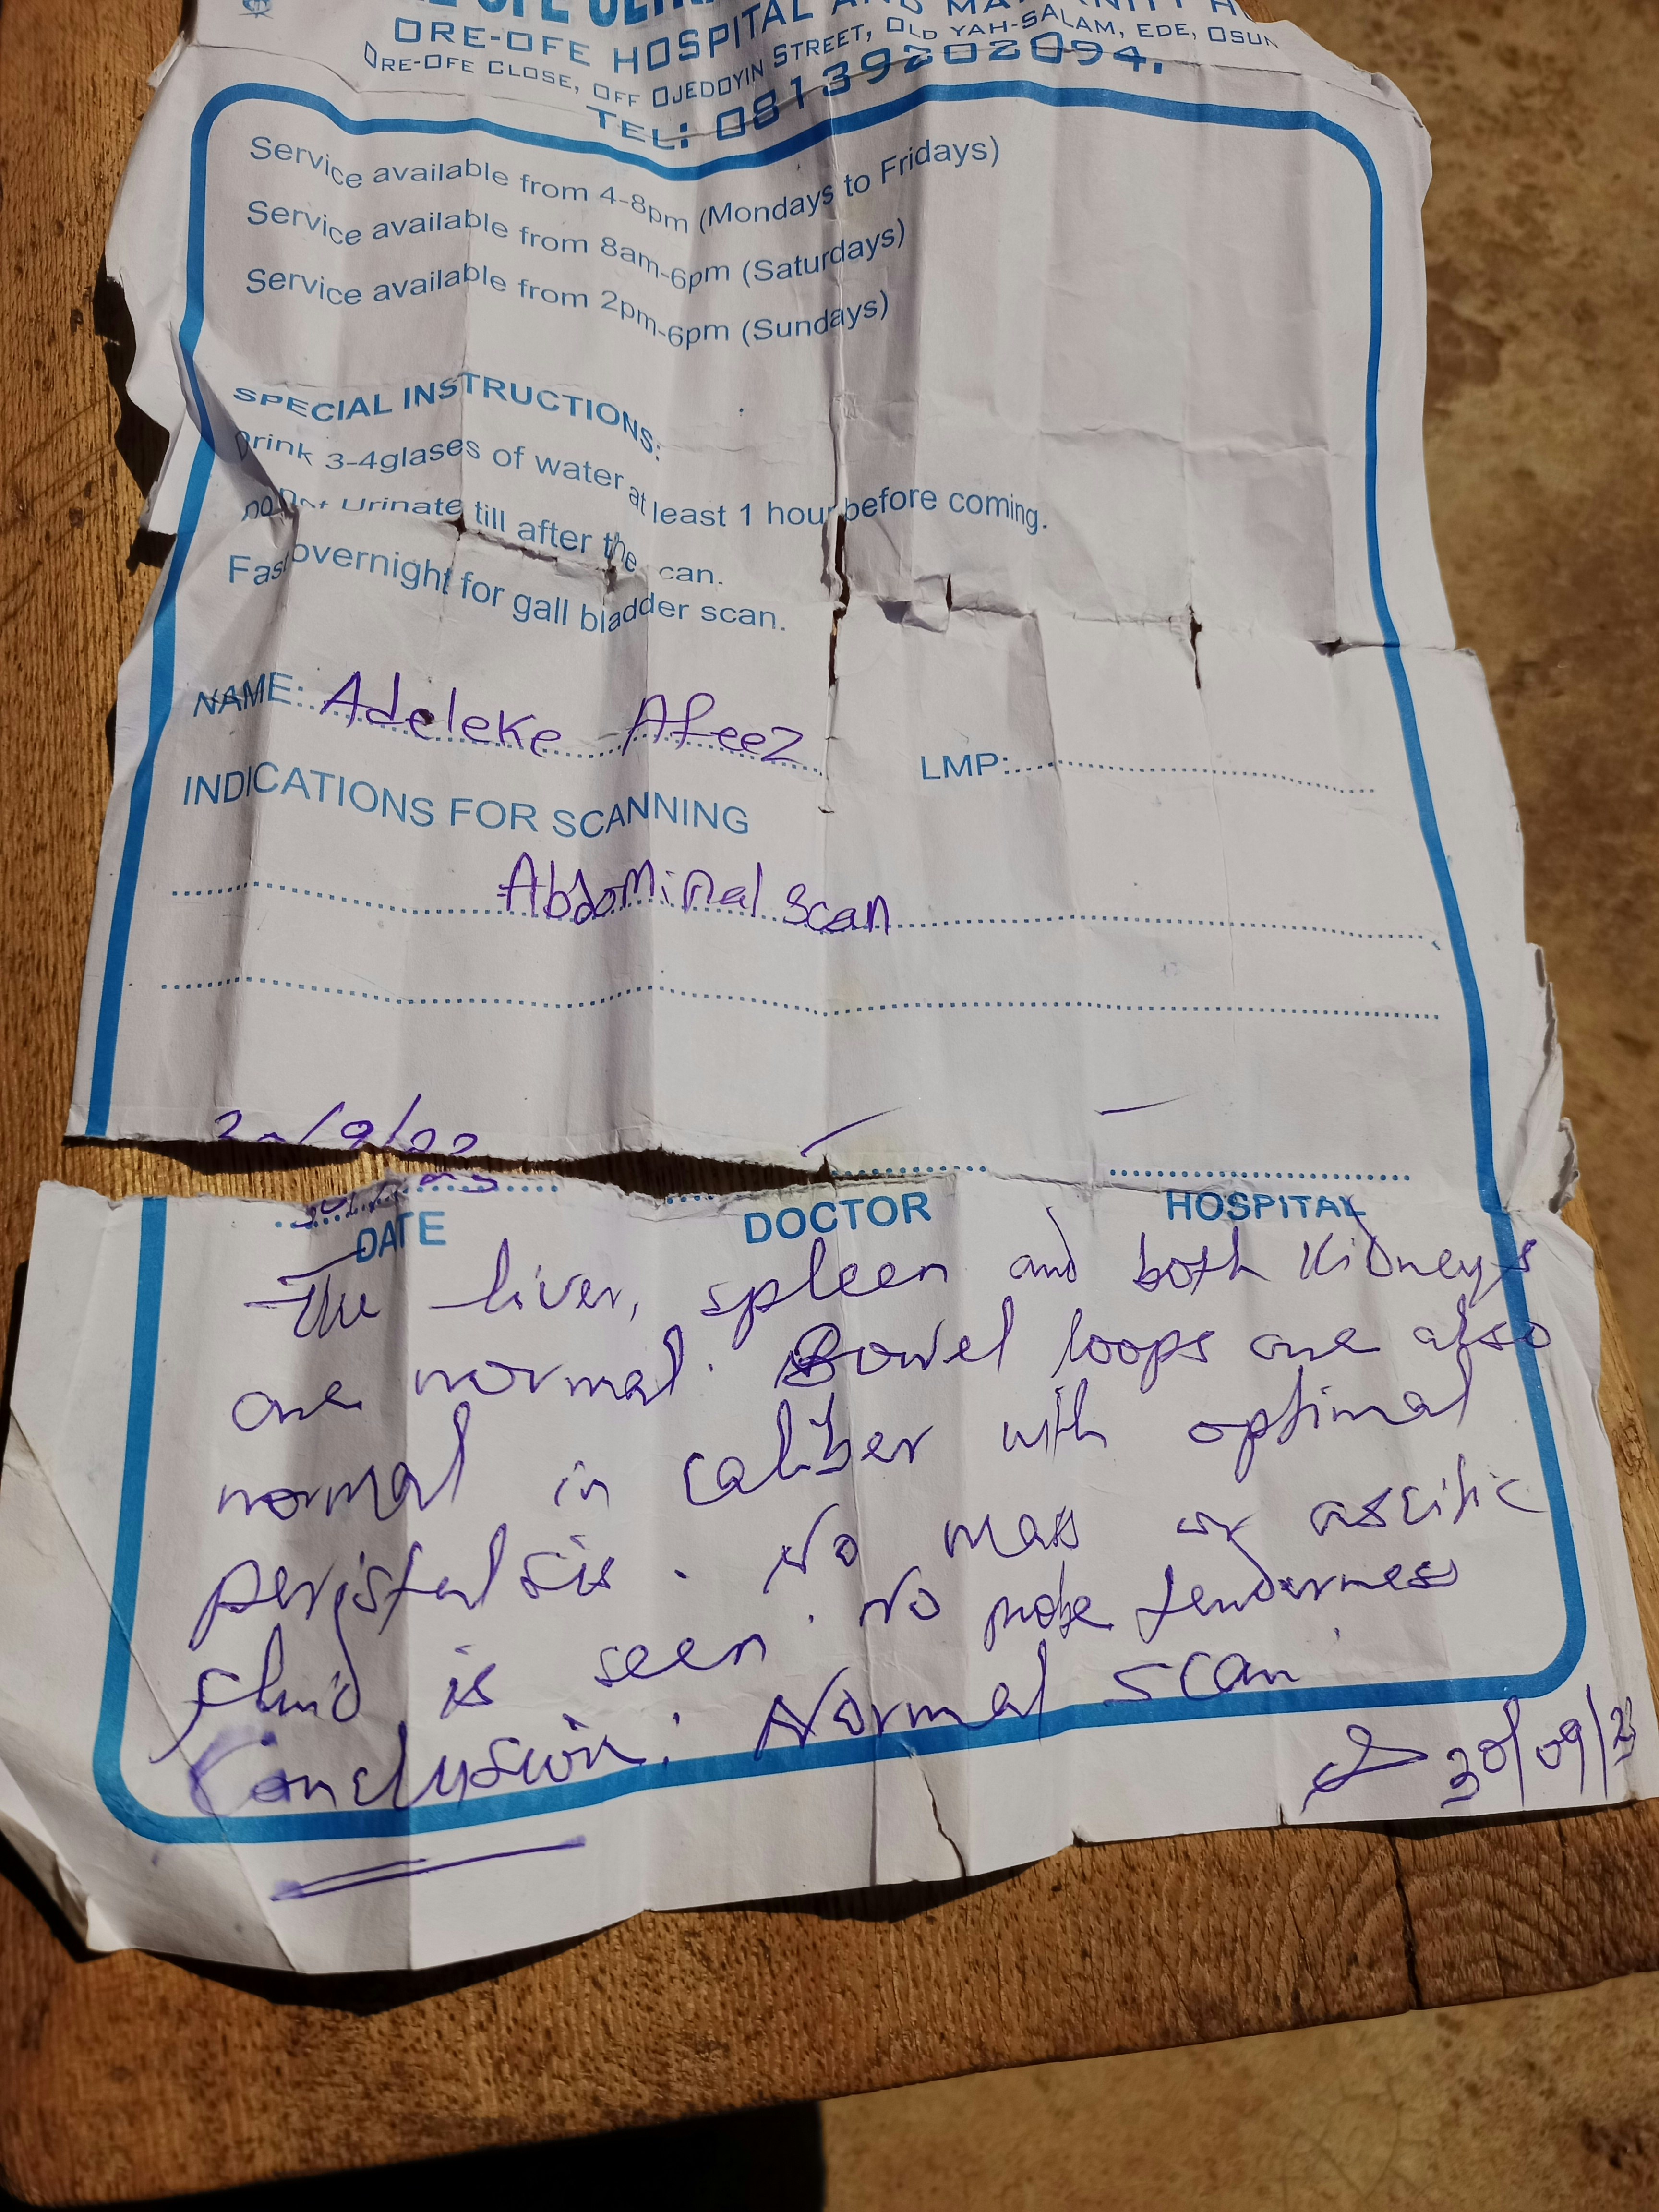 ORE-OFE HOSPITAL AND
ORE-OFE CLOSE, OFF OJEDOYIN STREET, OLD YAH-SALAM, EDE, OSUN
TEL: 08139202094.
Service available from 4-8pm (Mondays to Fridays)
Service available from 8am-6pm (Saturdays)
Service available from 2pm-6pm (Sundays)
SPECIAL INSTRUCTIONS:
Drink 3-4glases of water at least 1 hour before coming.
Urinate till after the can.
Fas overnight for gall bladder scan.
NAME: Adeleke Afeez
LMP:
INDICATIONS FOR SCANNING
Abdominal scan
DATE DOCTOR HOSPITAL
The liver, spleen and both kidneys
are normal. Bowel loops are also
normal in caliber with optimal
peristalsis. No mass or ascitic
fluid is seen. No probe tenderness.
Conclusion: Normal scan
30/09/23